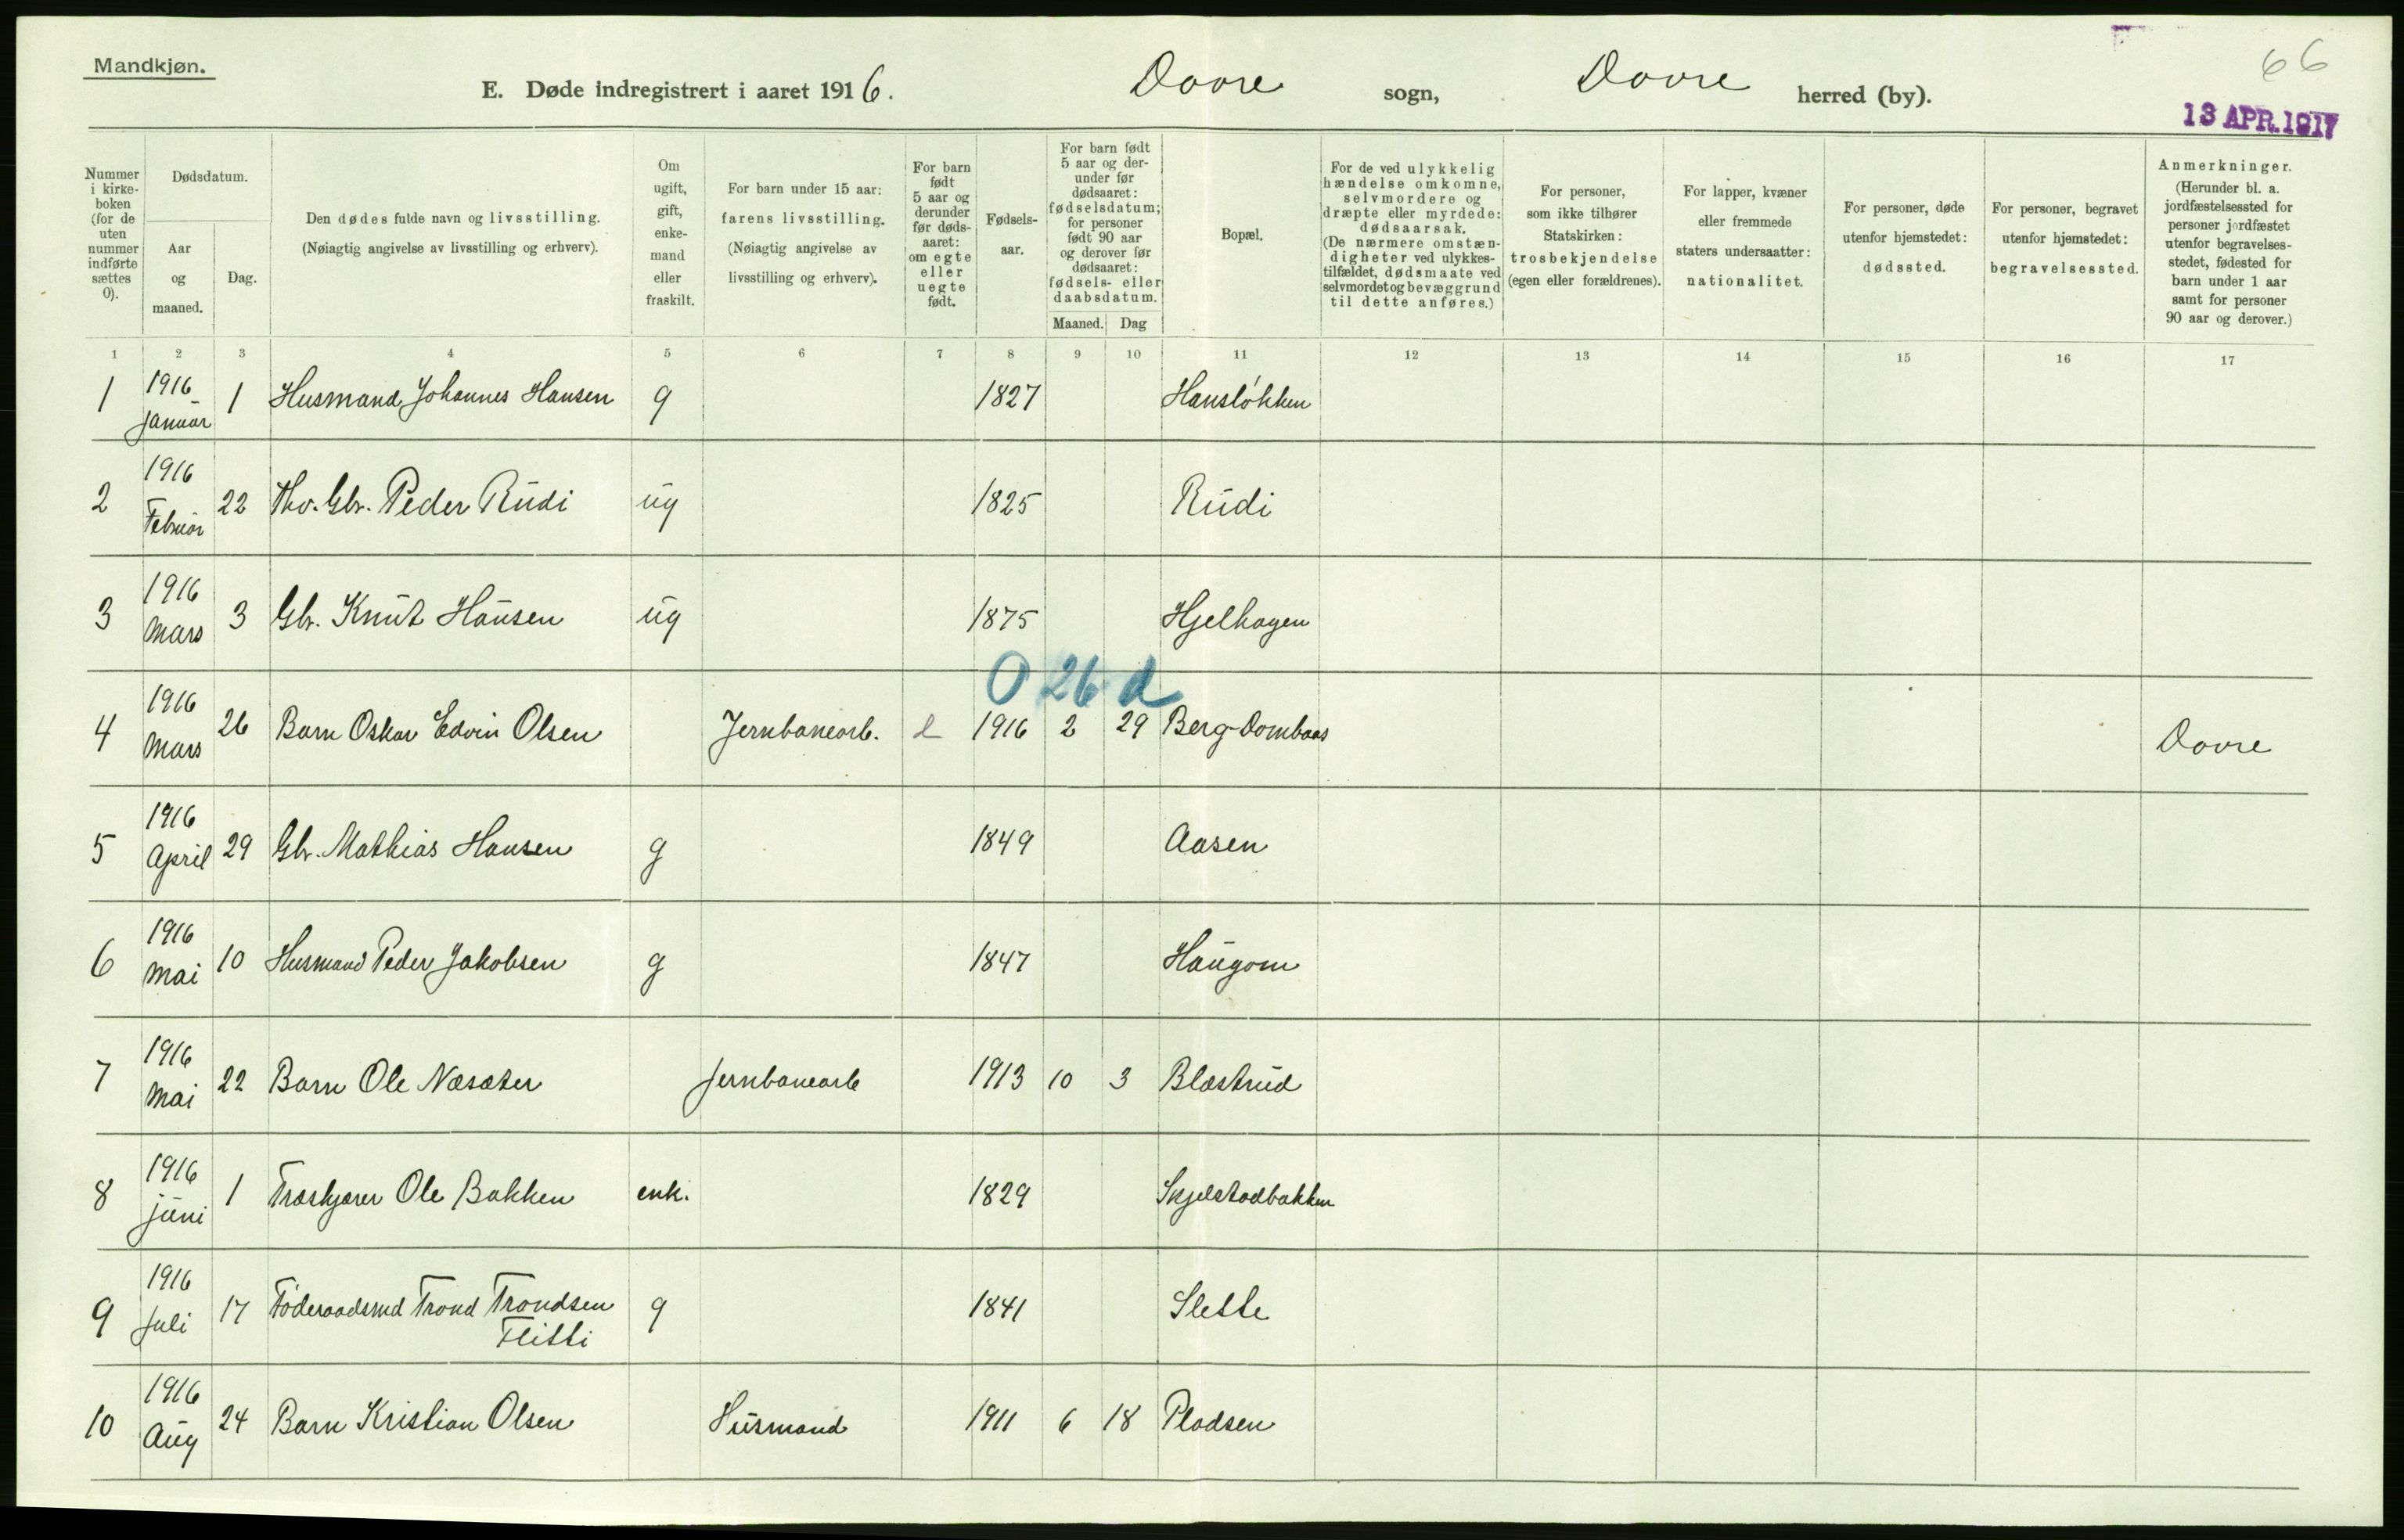 Mandkjøn.
E. Døde indregistrert i aaret 1916. Dovre sogn, Dovre herred (by).
66
13 APR. 1917
Nummer i kirke-boken (for de uten nummer indførte sættes 0).
Dødsdatum.
Aar og maaned.
Dag.
Den dødes fulde navn og livsstilling.
(Nøiagtig angivelse av livsstilling og erhverv).
Om ugift, gift, enke-mand eller fraskilt.
For barn under 15 aar: farens livsstilling.
(Nøiagtig angivelse av livsstilling og erhverv).
For barn født 5 aar og derunder før døds-aaret: om egte eller uegte født.
Fødsels-aar.
For barn født 5 aar og der-under før dødsaaret: fødselsdatum; for personer født 90 aar og derover før dødsaaret: fødsels- eller daabsdatum.
Maaned. Dag
Bopæl.
For de ved ulykkelig hændelse omkomne, selvmordere og dræpte eller myrdede: dødsaarsak.
(De nærmere omstæn-digheter ved ulykkes-tilfældet, dødsmaate ved selvmordet og bevæggrund til dette anføres.)
For personer, som ikke tilhører Statskirken: trosbekjendelse (egen eller forældrenes).
For lapper, kvæner eller fremmede staters undersaatter: nationalitet.
For personer, døde utenfor hjemstedet: dødssted.
For personer, begravet utenfor hjemstedet: begravelsessted.
Anmerkninger.
(Herunder bl. a. jordfæstelsessted for personer jordfæstet utenfor begravelses-stedet, fødested for barn under 1 aar samt for personer 90 aar og derover.)
1 2 3 4 5 6 7 8 9 10 11 12 13 14 15 16 17
1 1916 Januar 1 Husmand Johannes Hansen g 1827 Hansløkken
2 1916 Februar 22 Fhv. Gbr. Peder Rudi ug 1825 Rudi
3 1916 Mars 3 Gbr. Knut Hansen ug 1875 Hjelhagen
0 26 d
4 1916 Mars 26 Barn Oskar Edvin Olsen Jernbanearb. e 1916 2 29 Berg-Dombaas Dovre
5 1916 April 29 Gbr. Mathias Hansen g 1849 Aasen
6 1916 Mai 10 Husmand Peder Jakobsen g 1847 Haugom
7 1916 Mai 22 Barn Ole Næsæter Jernbanearb 1913 10 3 Blæstrud
8 1916 juni 1 Træskjærer Ole Bakken enk. 1829 Skjelstadbakken
9 1916 Juli 17 Føderaadsmd Trond Trondsen Flitti g 1841 Slette
10 1916 Aug 24 Barn Kristian Olsen Husmand 1911 6 18 Pladsen